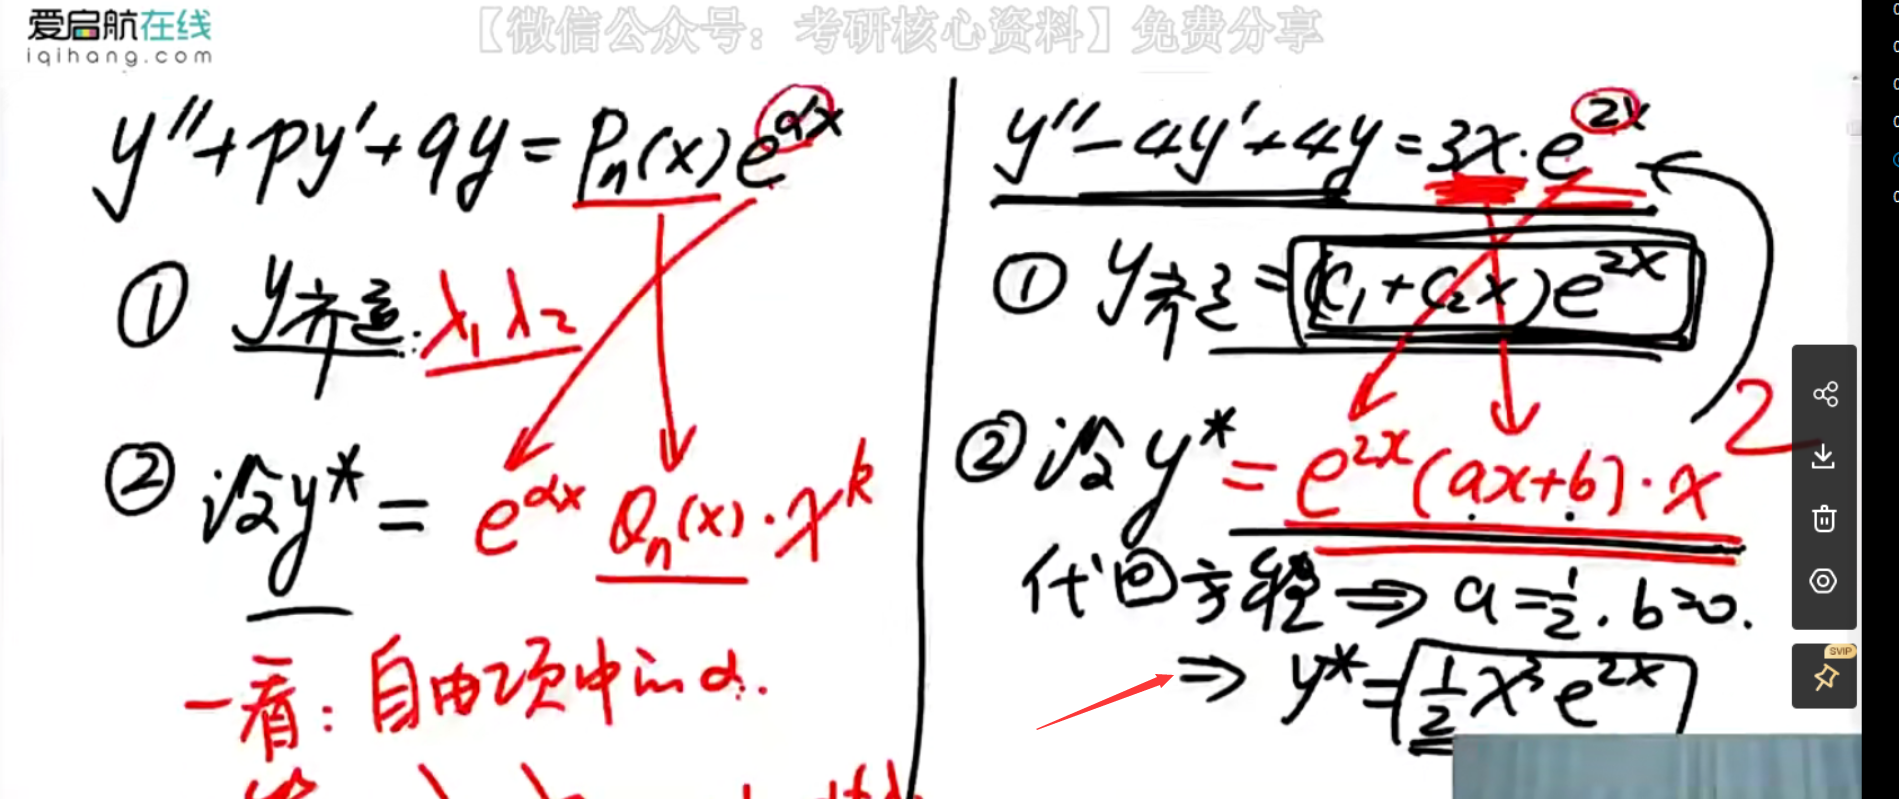 爱启航在线
iqihang.com
【微信公众号：考研核心资料】免费分享
y''+py'+qy=Pn(x)e^{αx}
① y齐通: λ₁ λ₂
② 设y*=e^{αx}Qn(x)·x^k
一看：自由项中的α.
y''-4y'+4y=3x·e^{2x}
① y齐通=(C₁+C₂x)e^{2x}
② 设y*=e^{2x}(ax+b)·x²
代回方程⇒a=1/2.b=0.
⇒y*=1/2x³e^{2x}
SVIP